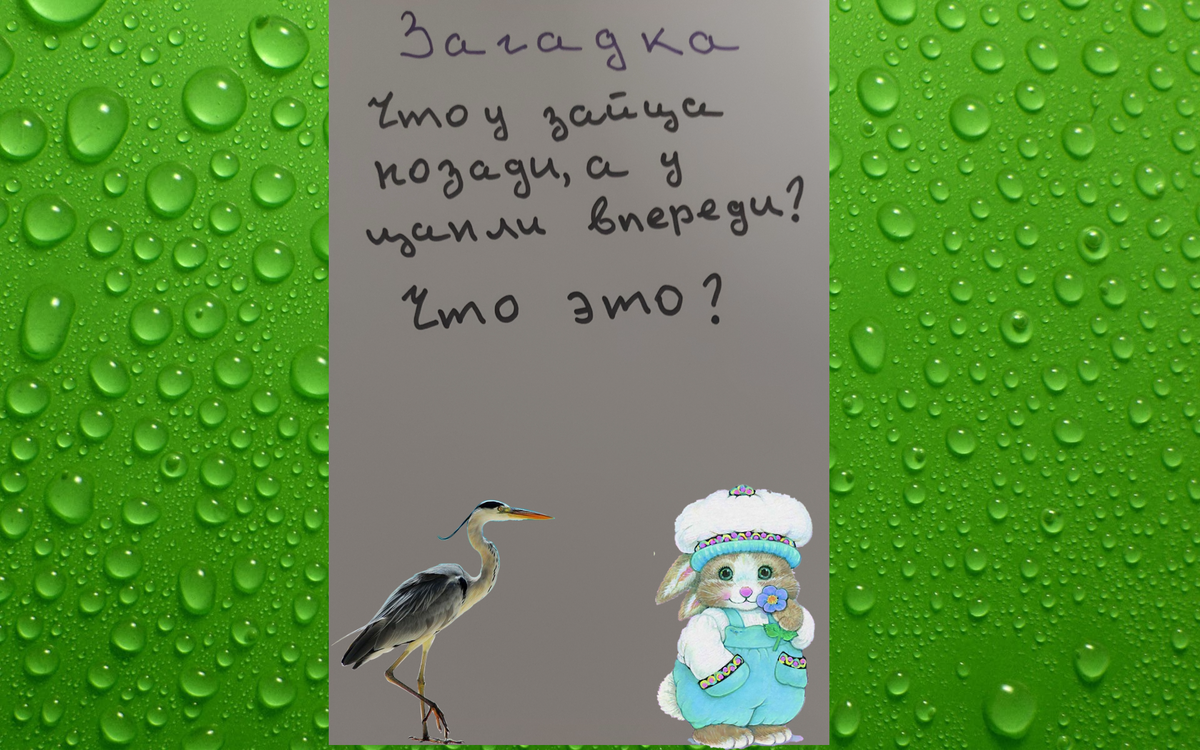 Загадка
Что у зайца
позади, а у
цапли впереди?
Что это?